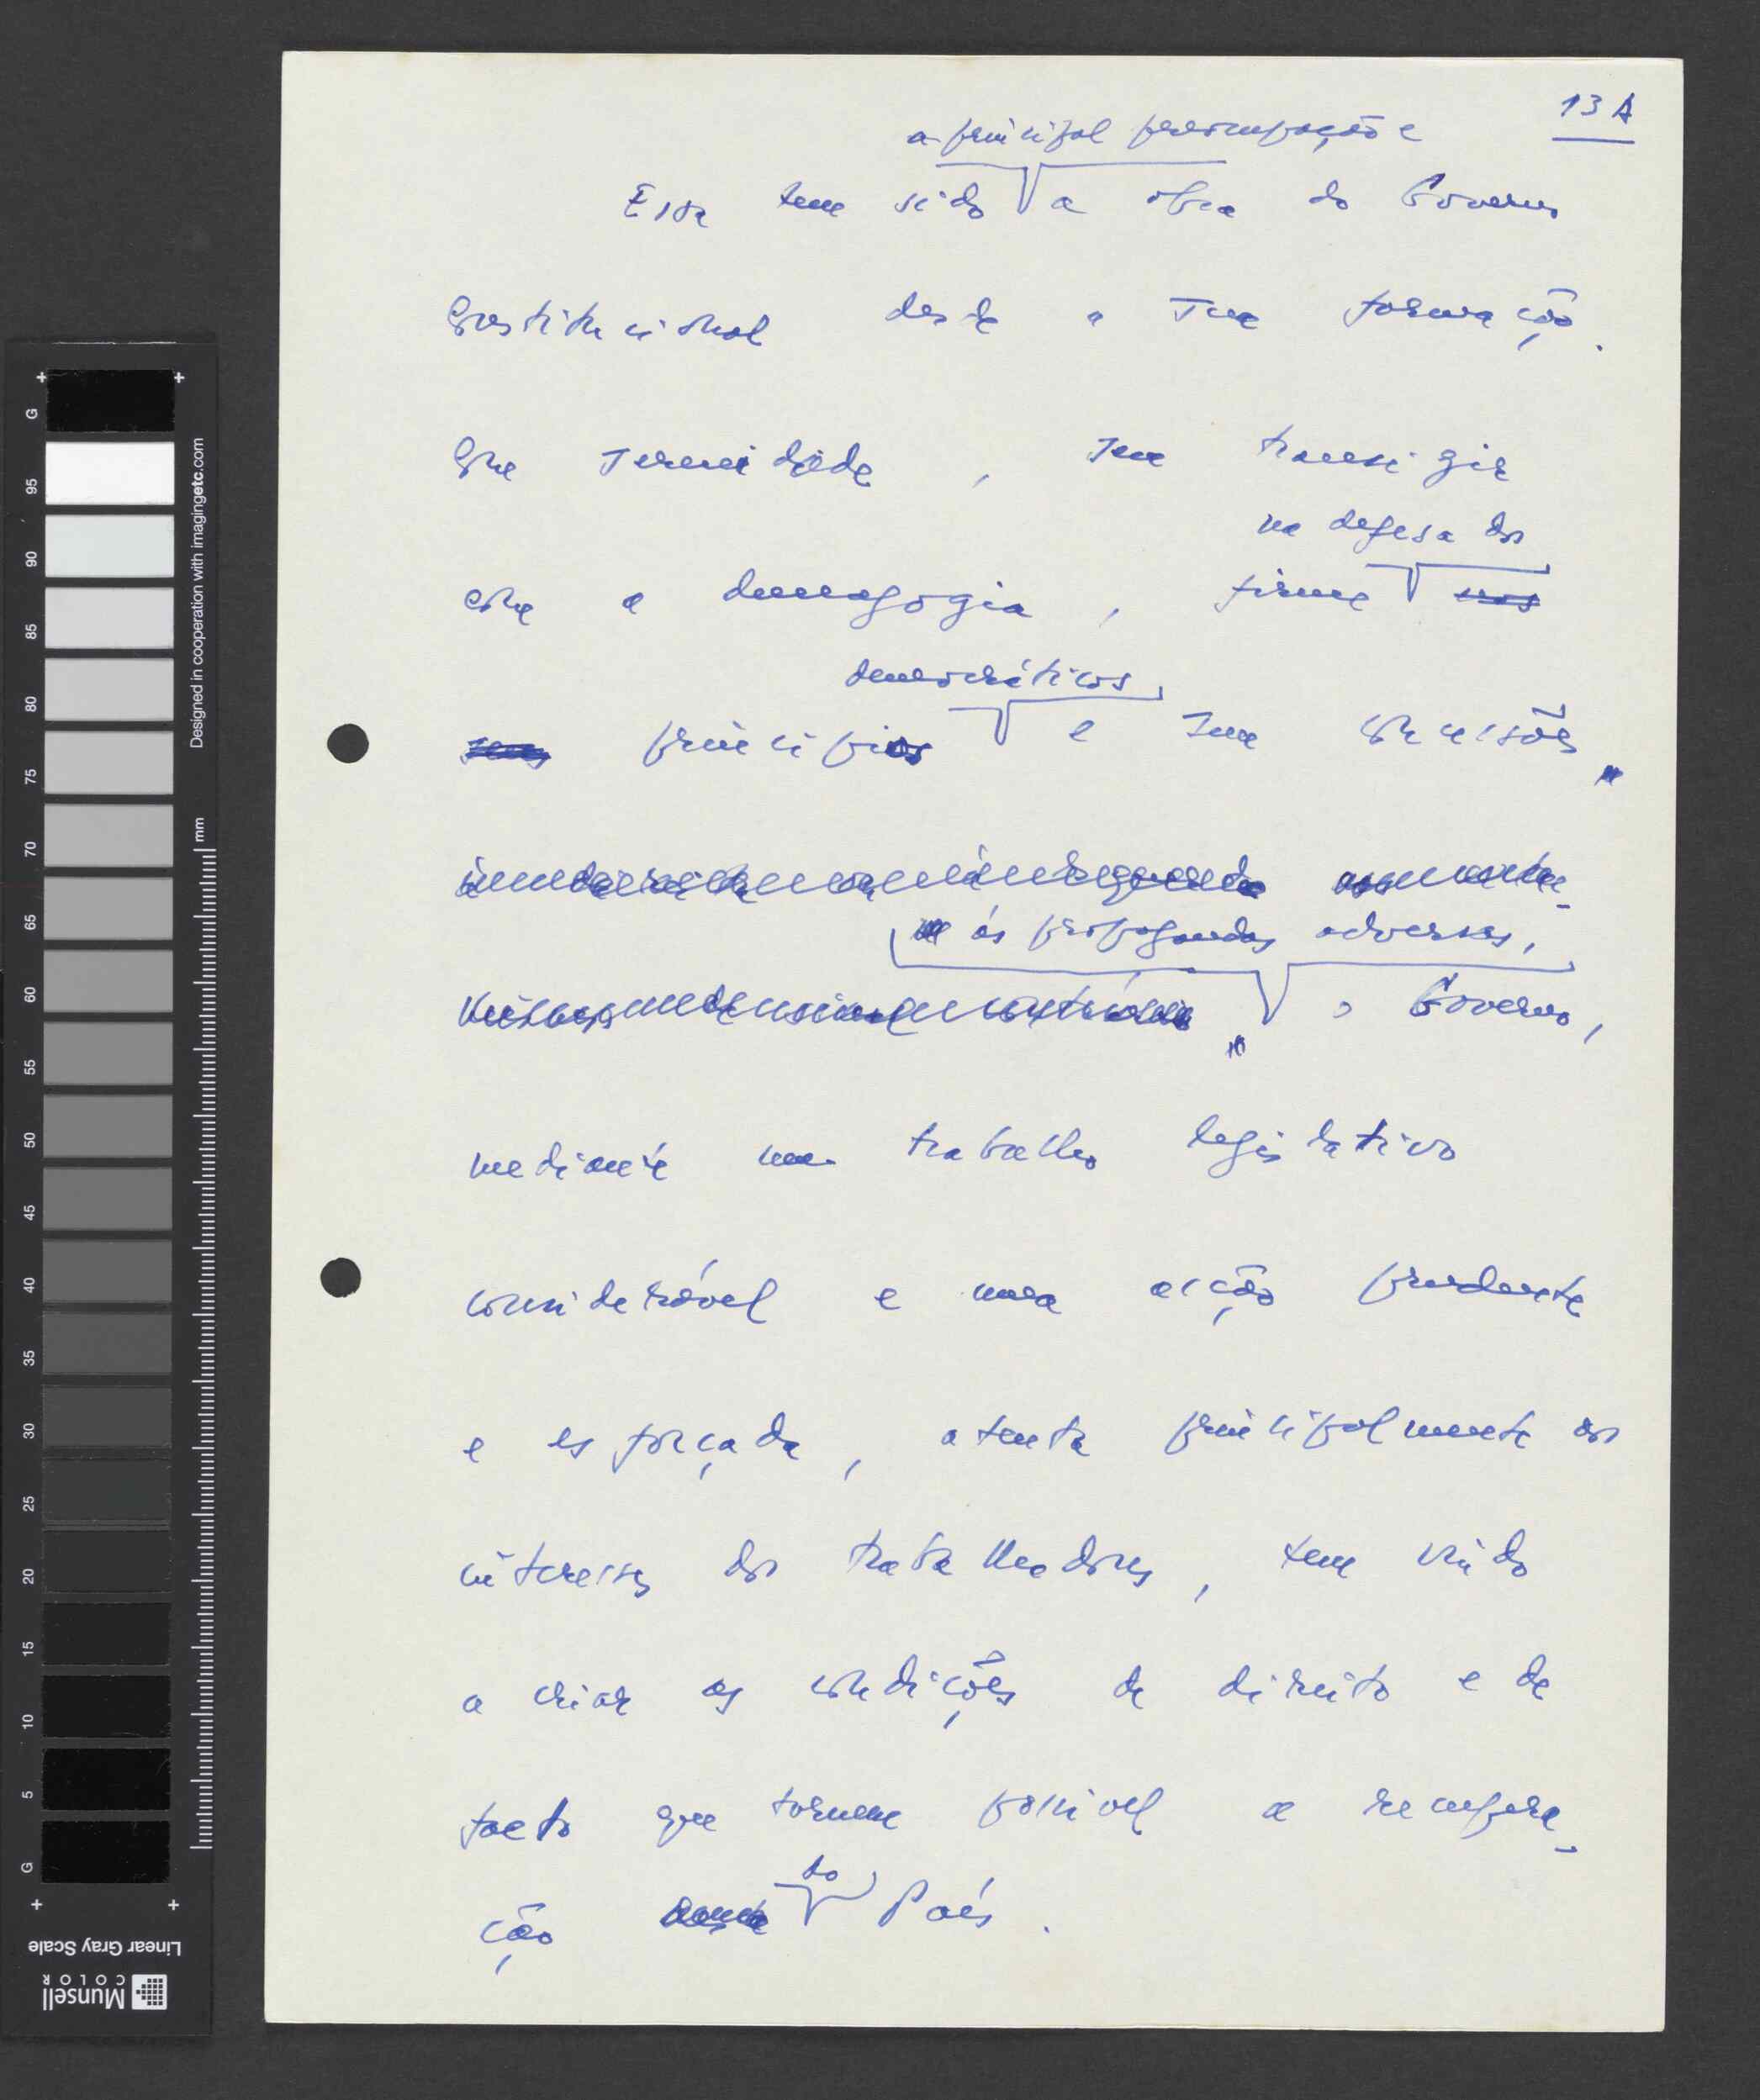 13 A
a principal preocupação e
Essa tem sido a obra do Governo
Constitucional desde a sua formação.
Com serenidade, sem transigir
na defesa dos
com a demagogia, firme nos
democráticos,
seus princípios e sem concessões
às propagandas adversas,
o Governo,
mediante um trabalho legislativo
considerável e uma acção prudente
e esforçada, atenta principalmente aos
interesses dos trabalhadores, tem vindo
a criar as condições de direito e de
facto que tornem possível a recupera-
do
ção País.
G
95
90
85
80
75
70
65
60
55
50
45
40
35
30
25
20
15
10
5
G
mm
Designed in cooperation with imagingetc.com
Linear Gray Scale
Munsell
COLOR